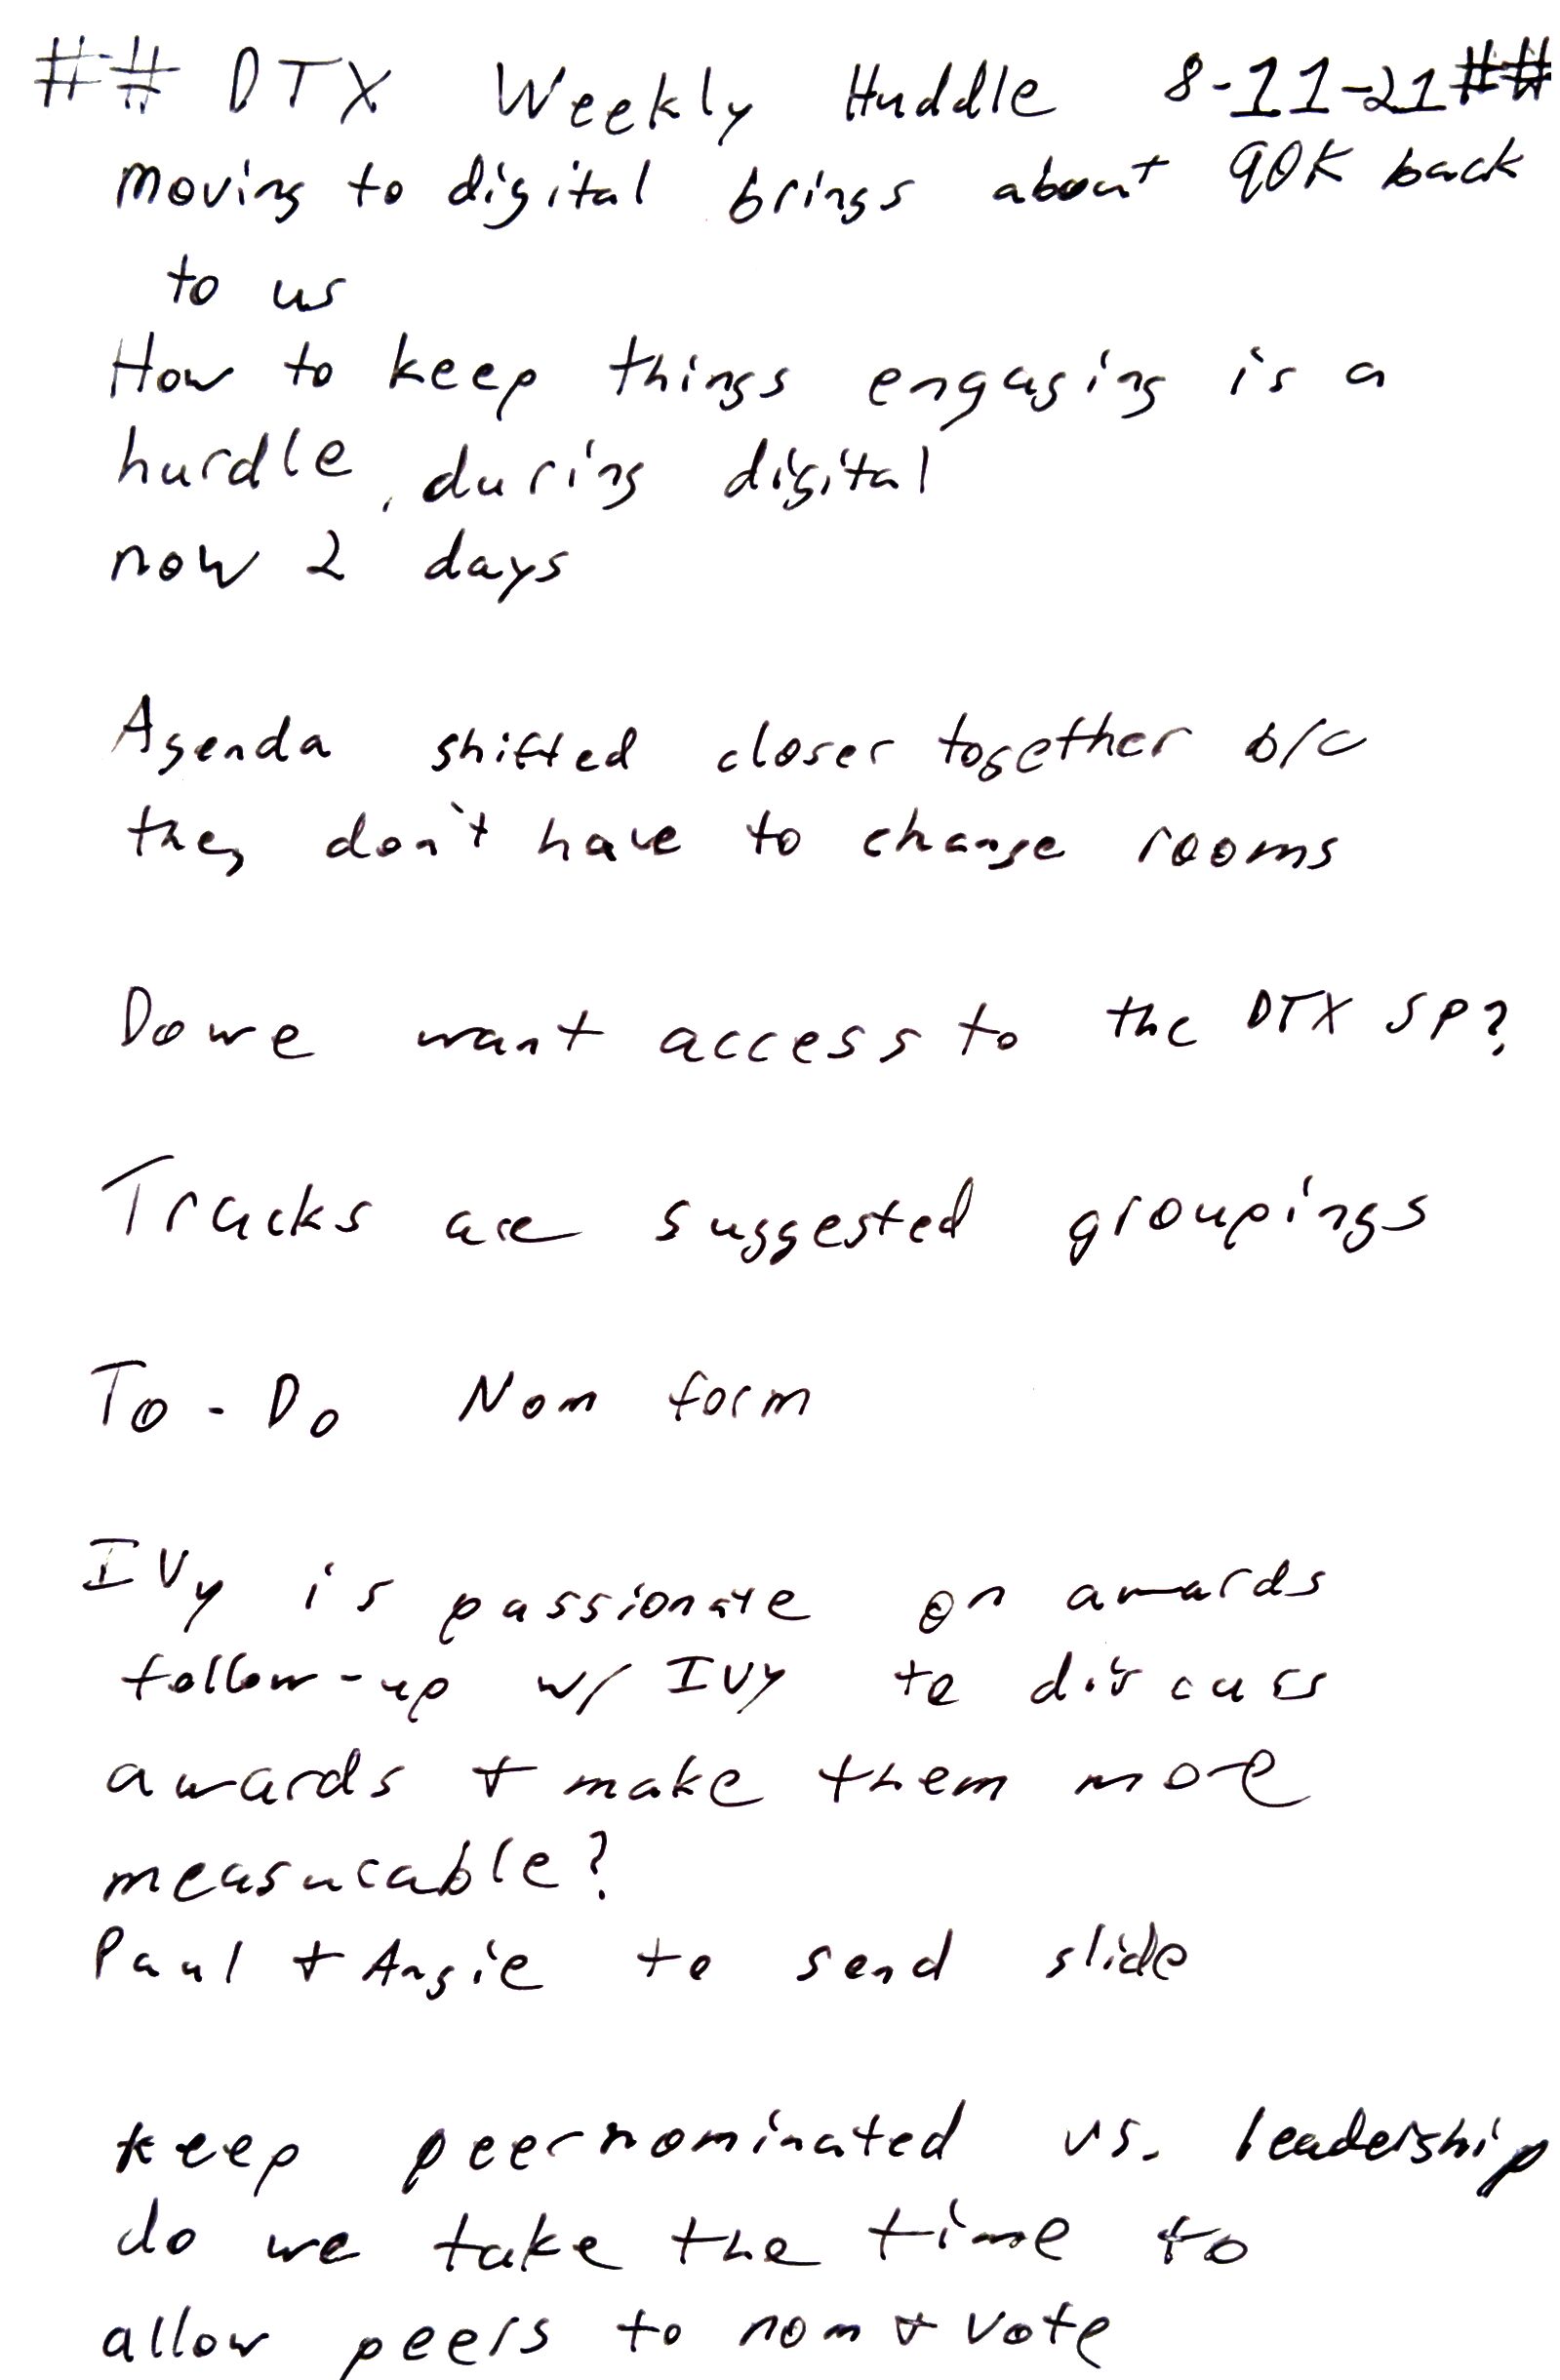 ## DTX Weekly Huddle 8-11-21##
Moving to digital brings about 90K back
to us
How to keep things engaging is a
hurdle, during digital
now 2 days
Agenda shifted closer together b/c
they don't have to change rooms
Do we want access to the DTX SP?
Tracks are suggested groupings
To-Do Nom form
Ivy is passionate on awards
follow-up w/ Ivy to discuss
awards + make them more
measurable?
Paul + Angie to send slide
Keep peer nominated vs. leadership
do we take the time to
allow peers to nom + vote